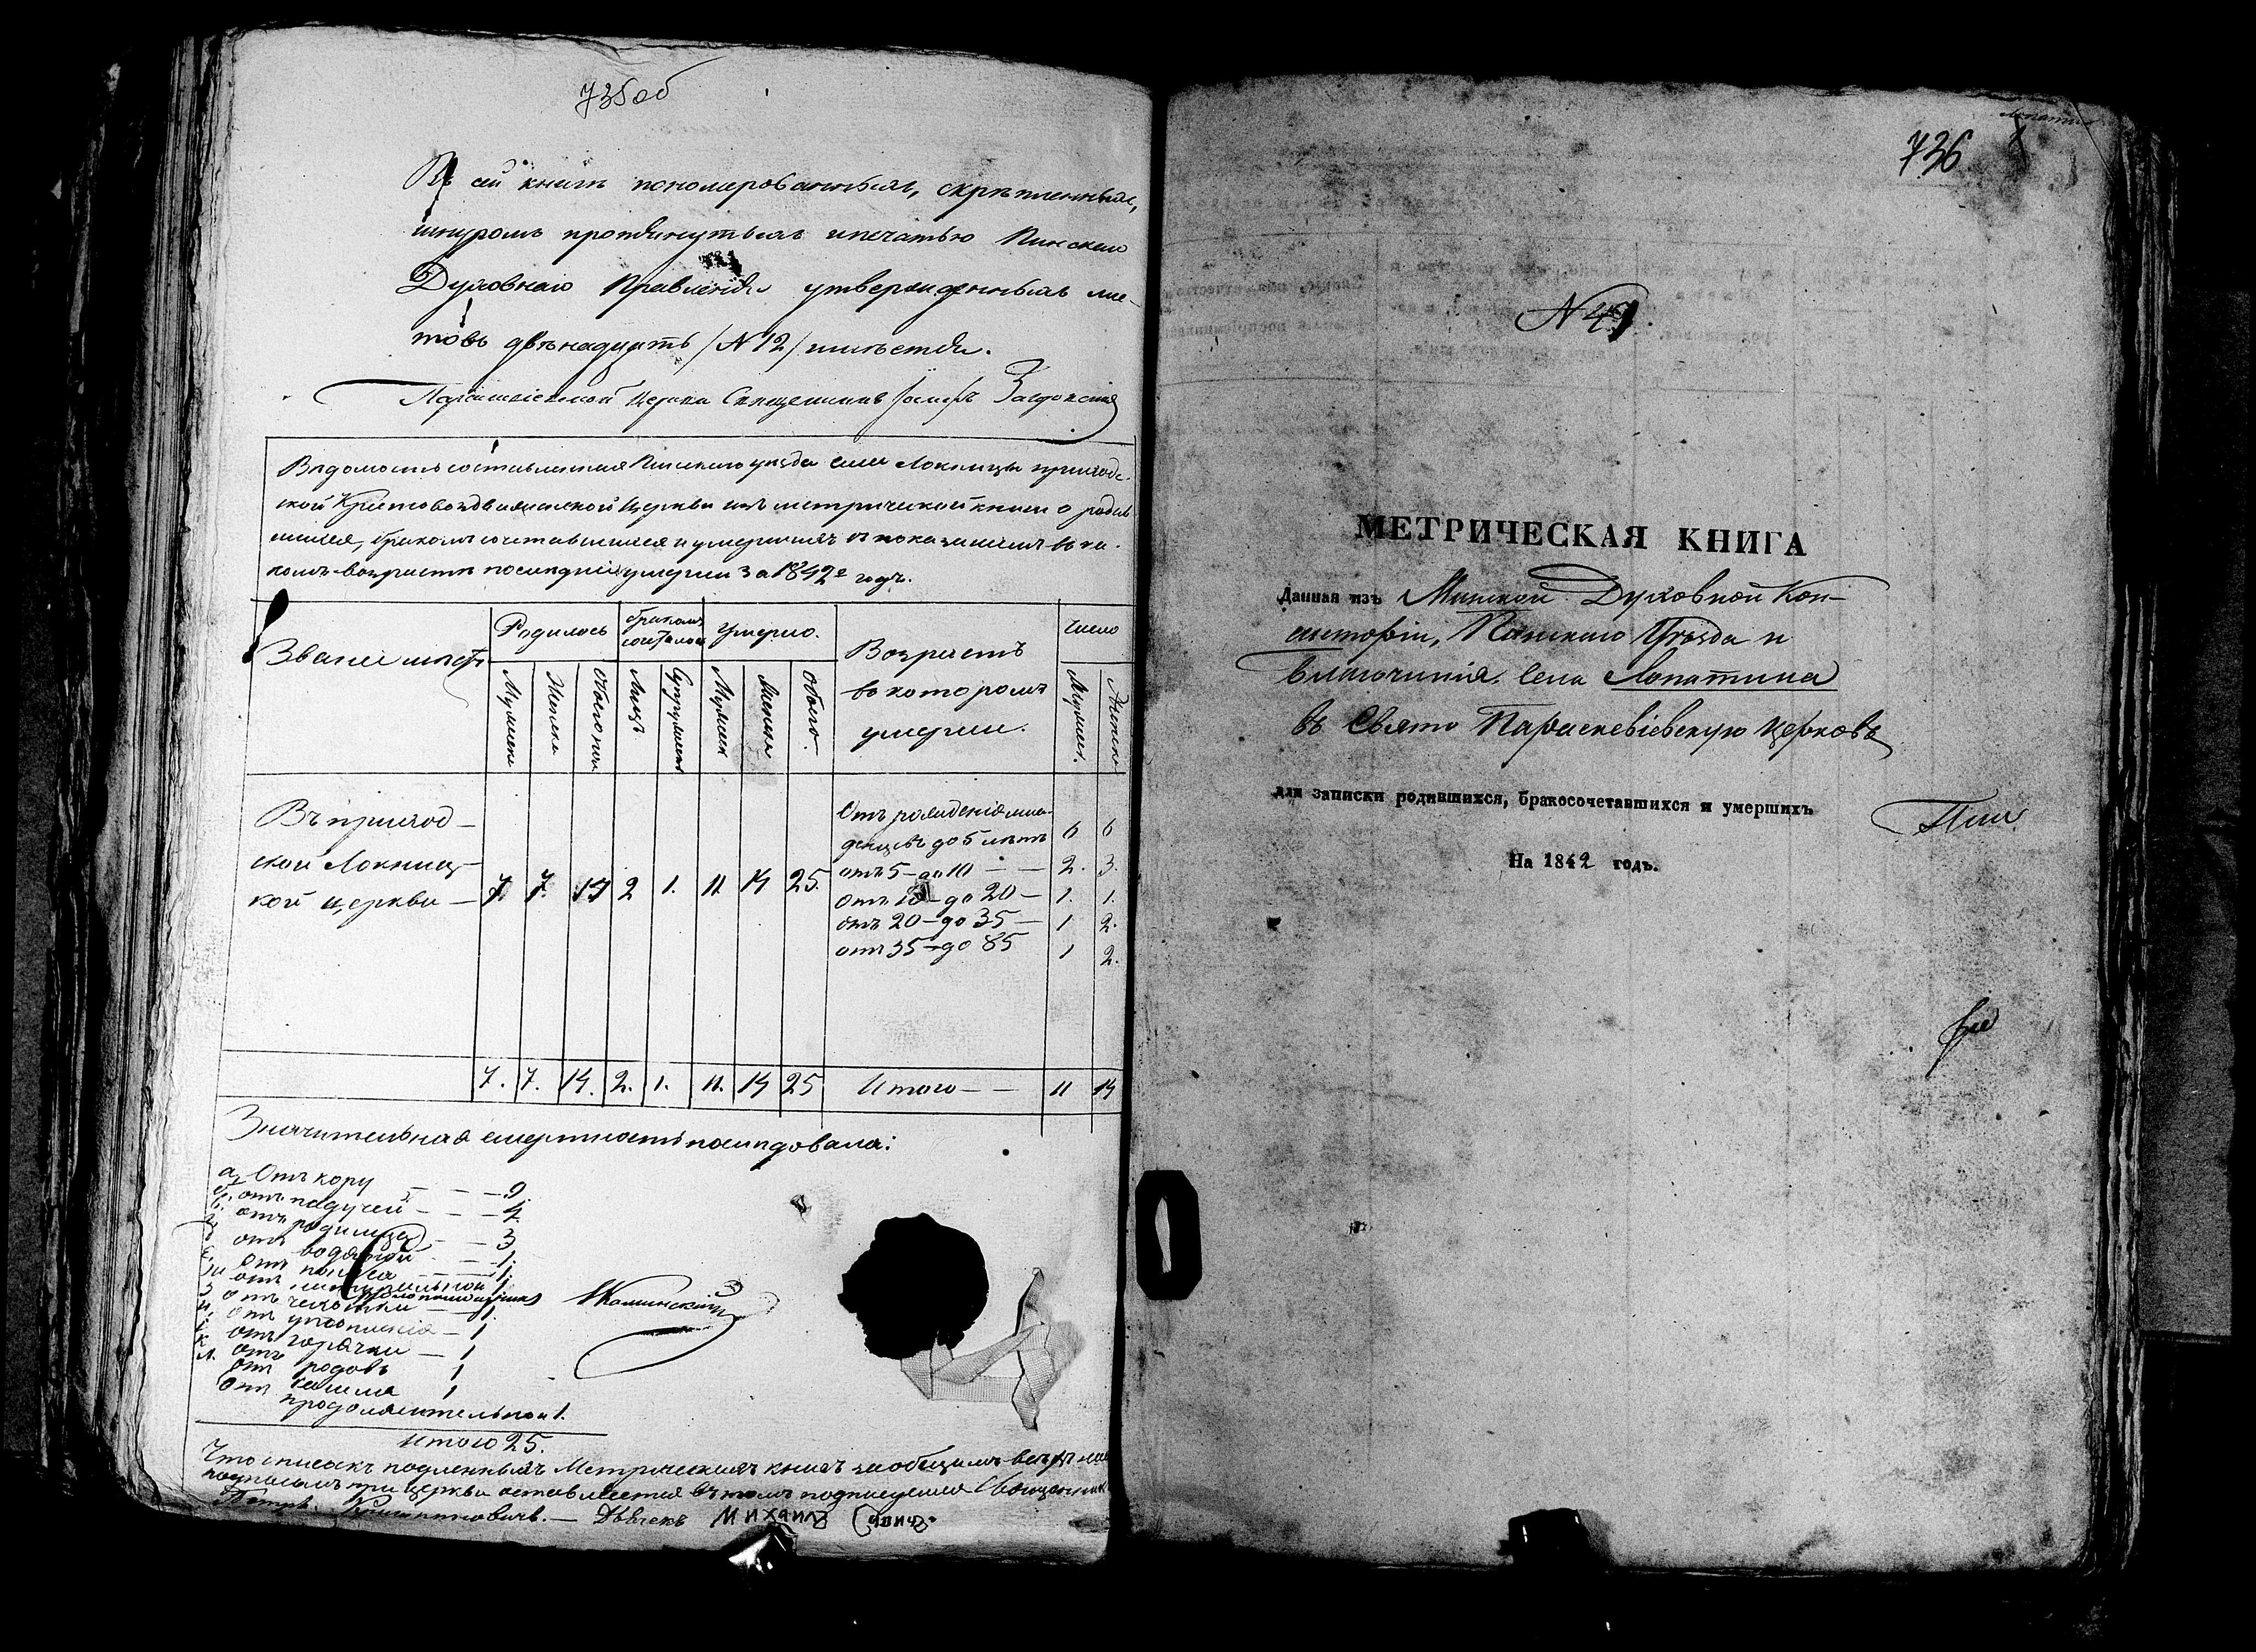 735об
Въ сей книгѣ пономерованныхъ, скрѣпленныхъ,
шнуромъ протянутыхъ и печатью Пинскаго
Духовнаго Правленія утвержденныхъ лис-
товъ двѣнадцать /N 12/ имѣется.
церкви Священникъ
Вѣдомость составленная Пинскаго уѣзда села Локницы приход-
ской Крестовоздвиженской Церкви изъ метрической книги о родив
шихся, бракомъ сочетавшихся и умершихъ съ показаніемъ въ ка-
комъ возрастѣ послѣдніе умерли за 1842й годъ.
Званіе мѣстъ
Родилось
бракомъ сочеталось
Умерло.
Возрастъ
въ которомъ
умерли.
Число
Мужеска
Женска
Обоего пола
Лицъ
Супружествъ
Мужеска
Женска
Обоего.
Мужеск.
Женска
Въ приход-
ской Локниц-
кой церкви —
7. 7. 14 2 1. 11 14 25.
Отъ рожденія мла-
денцевъ до 5 лѣтъ 6 6
отъ 5 — до 10 — — 2. 3.
отъ 10 — до 20 — 1. 1.
отъ 20 — до 35 — 1 2.
отъ 35 — до 85 1 2.
7. 7. 14. 2. 1. 11. 14 25 Итого — — 11 14
Значительная смертность послѣдовала:
а, Отъ кору — — — 9.
отъ падучей — — — 4
отъ родимца — — 3
отъ водяной — — 1.
отъ поноса — — 1.
отъ чахотки — 1.
отъ утопленія — 1
отъ горячки — 1
отъ родовъ 1
отъ кашля 1
продолжительной 1.
Итого 25.
Что списокъ подлинныхъ Метрическихъ книгъ за общимъ всѣхъ
подписомъ при церкви оставляется въ томъ подписуемся Священникъ
Петръ — Дьячекъ Михаилъ Савичъ.
Каминскій
736
N 49.
МЕТРИЧЕСКАЯ КНИГА
Данная изъ Минской Духовной Кон-
систоріи, Пинскаго Уѣзда и
благочинія. Села Лопатина
въ Свято Параскевіевскую церковь
для записки родившихся, бракосочетавшихся и умершихъ
На 1842 годъ.